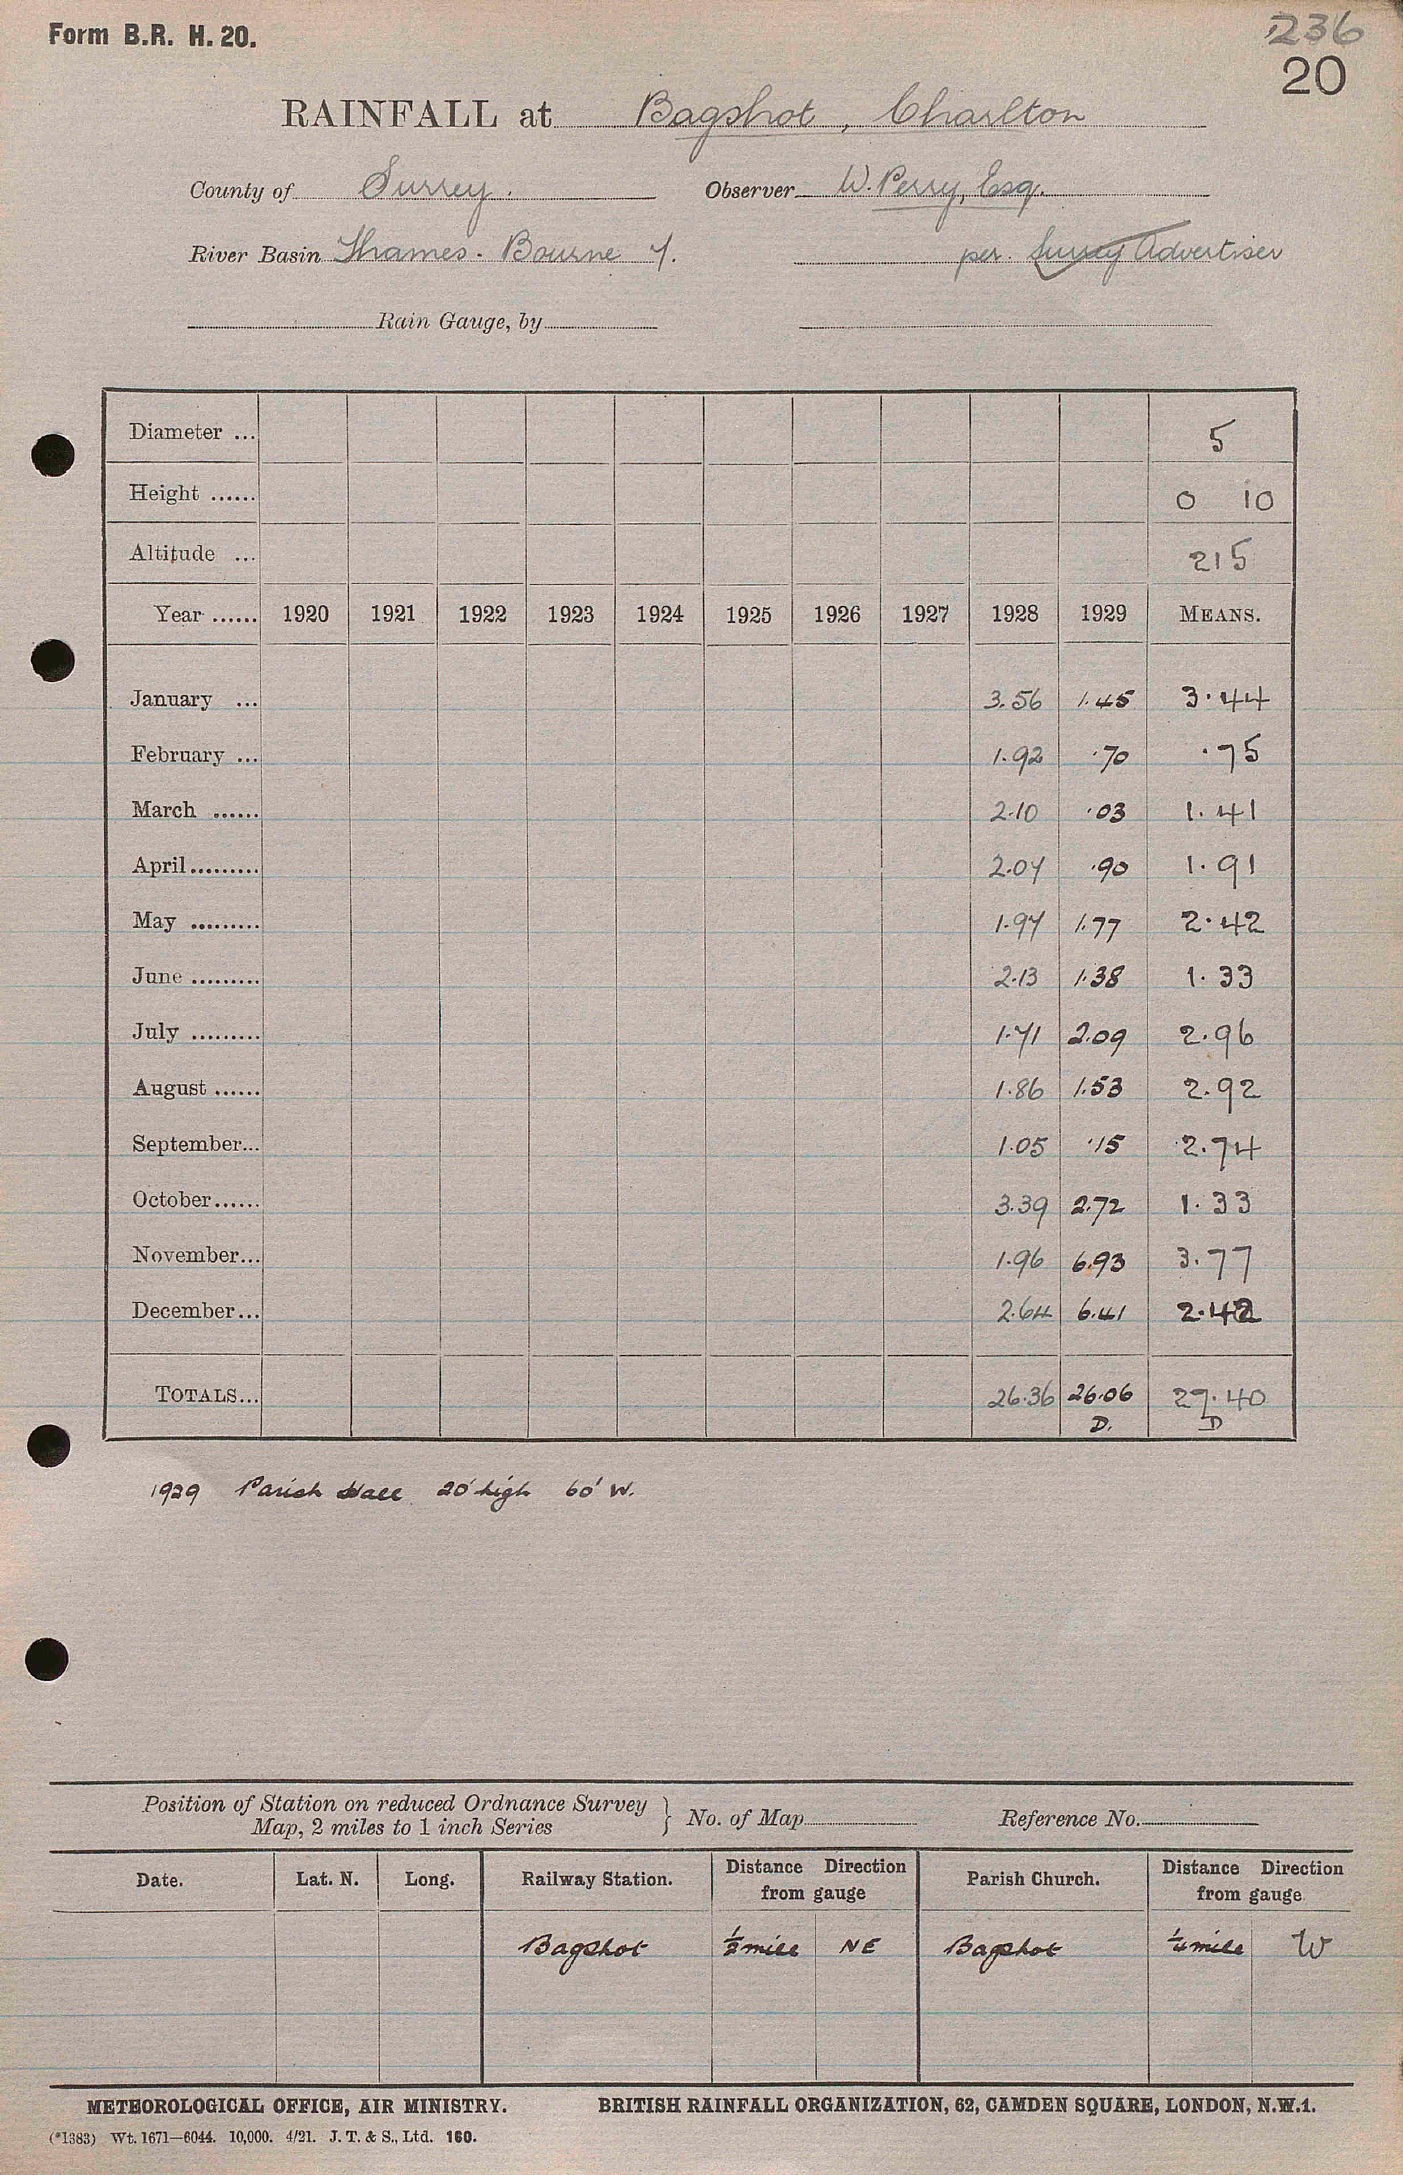 Form B.R. H. 20.
236
20
RAINFALL at Bagshot, Charlton
County of Surrey. Observer W. Perry, Esq.
River Basin Thames - Bourne 7. per. Surrey Advertiser
Rain Gauge, by
Diameter ... 5
Height ...... 0 10
Altitude ... 215
Year ...... 1920 1921 1922 1923 1924 1925 1926 1927 1928 1929 MEANS.
January ... 3.56 1.45 3.44
February ... 1.92 .70 .75
March ...... 2.10 .03 1.41
April ......... 2.07 .90 1.91
May ......... 1.97 1.77 2.42
June ......... 2.13 1.38 1.33
July ......... 1.71 2.09 2.96
August ...... 1.86 1.53 2.92
September... 1.05 .15 2.74
October...... 3.39 2.72 1.33
November... 1.96 6.93 3.77
December... 2.64 6.41 2.42
TOTALS... 26.36 26.06 27.40
D. D
1929 Parish Hall 20' high 60' W.
Position of Station on reduced Ordnance Survey
Map, 2 miles to 1 inch Series } No. of Map Reference No.
Date. Lat. N. Long. Railway Station. Distance Direction from gauge Parish Church. Distance Direction from gauge
Bagshot ½ mile NE Bagshot ¼ mile W
METEOROLOGICAL OFFICE, AIR MINISTRY. BRITISH RAINFALL ORGANIZATION, 62, CAMDEN SQUARE, LONDON, N.W.1.
(*1383) Wt. 1671—6044. 10,000. 4/21. J. T. & S., Ltd. 160.